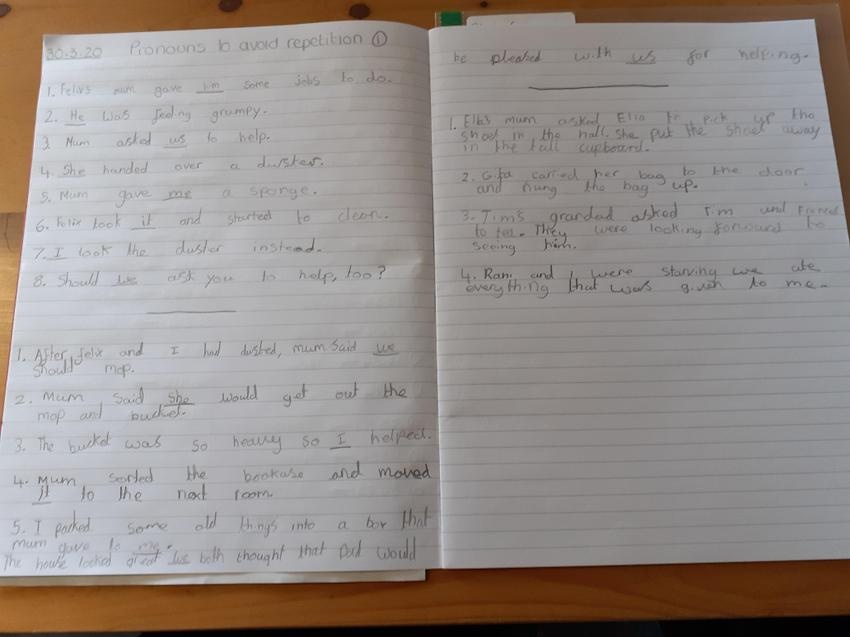 30.3.20 Pronouns to avoid repetition ①
1. Felix's mum gave him some jobs to do.
2. He was feeling grumpy.
3. Mum asked us to help.
4. She handed over a duster.
5. Mum gave me a sponge.
6. Felix took it and started to clean.
7. I took the duster instead.
8. Should we ask you to help, too?
1. After felix and I had dusted, mum said we
should mop.
2. Mum said she would get out the
mop and bucket.
3. The bucket was so heavy so I helped.
4. Mum sorted the bookcase and moved
it to the next room.
5. I packed some old things into a box that
mum gave to me.
The house looked great we both thought that Dad would
be pleased with us for helping.
1. Ella's mum asked Ella to pick up the
shoes in the hall. She put the shoes away
in the tall cupboard.
2. Gita carried her bag to the door
and hung the bag up.
3. Tim's grandad asked Tim and
to tea. They were looking forward to
seeing him.
4. Rani and I were starving we ate
everything that was given to me.